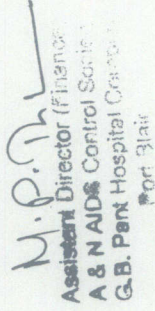 M.P.
Assistant Director (Finance
A & N AIDS Control Socie
G.B. Pant Hospital Comp
Port Blair